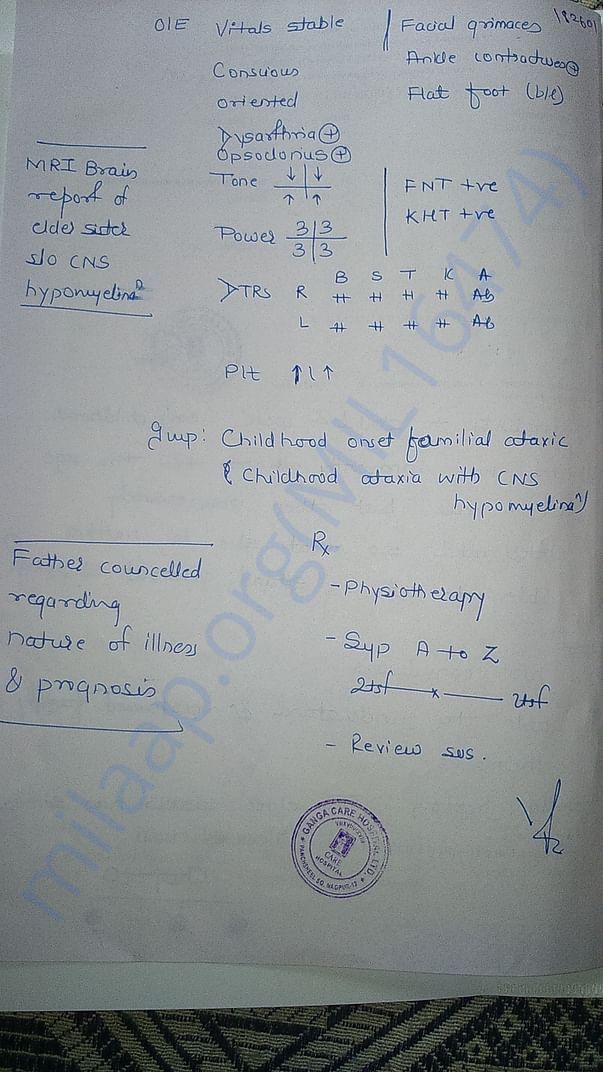 O/E Vitals stable
Conscious
oriented
Dysarthria ⊕
Opsoclonus ⊕
Tone ↓ | ↓
↑ | ↑
Power 3 | 3
3 | 3
Facial grimaces
Ankle contractures ⊕
Flat foot (b/e)
FNT +ve
KHT +ve
B S T K A
DTRs R ++ ++ ++ ++ Ab
L ++ ++ ++ ++ Ab
Plt ↑ | ↑
MRI Brain
report of
elder sister
s/o CNS
hypomyelinan
Imp: Childhood onset familial ataxic
( Childhood ataxia with CNS
hypomyelinan)
Father councelled
regarding
nature of illness
& prognosis
Rx
- Physiotherapy
- Syp A to Z
2tsf —x— 2tsf
- Review sos.
GANGA CARE HOSPITAL LTD.
CARE
HOSPITAL
PANCHSHEEL SQ. NAGPUR-12
milaap.org(MIL16474)